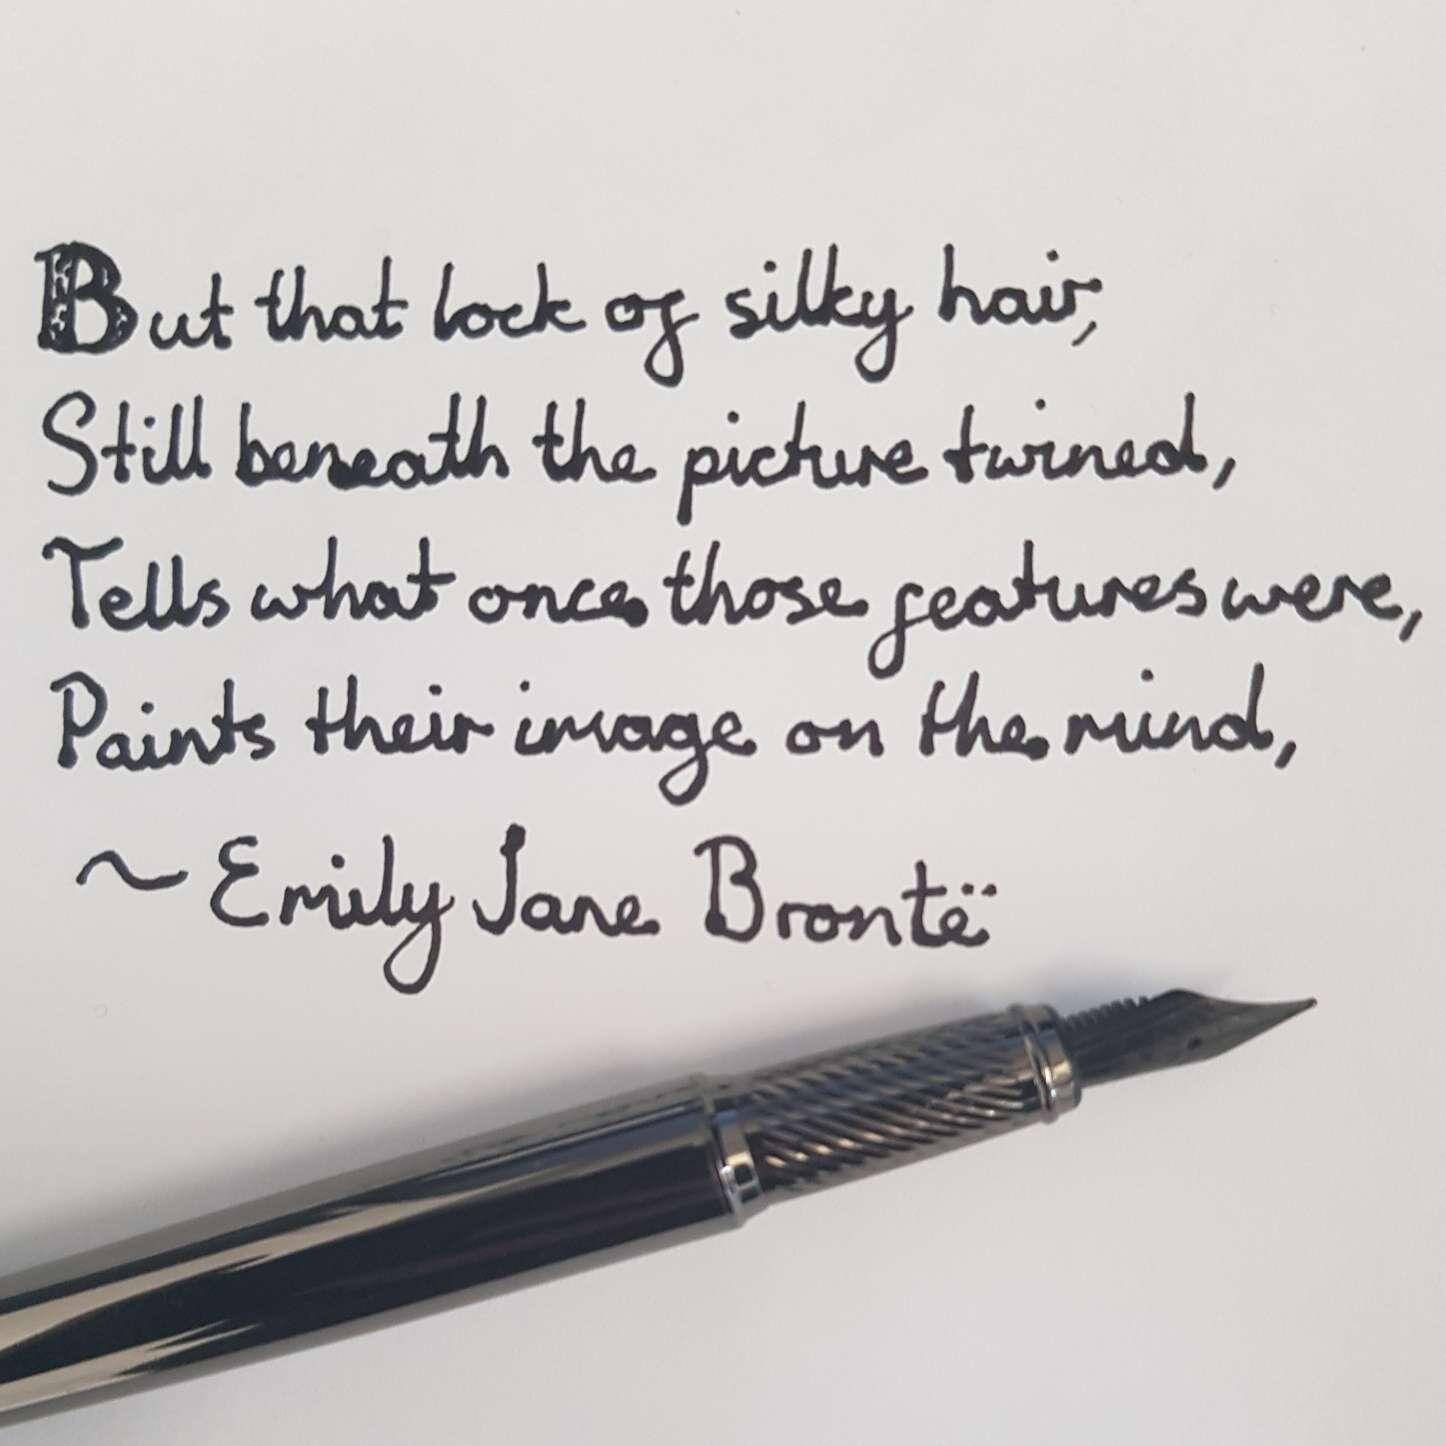 But that lock of silky hair,
Still beneath the picture twined,
Tells what once those features were,
Paints their image on the mind,
~ Emily Jane Brontë